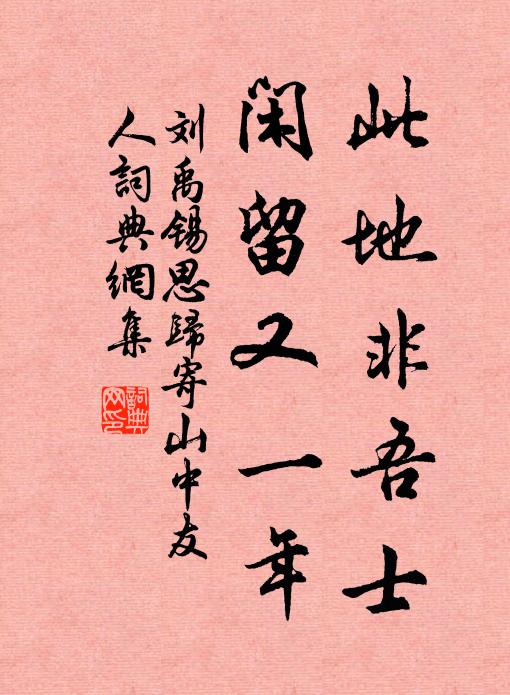 此地非吾士
闲留又一年
刘禹锡思歸寄山中友
人詞典網集
詞典
网印